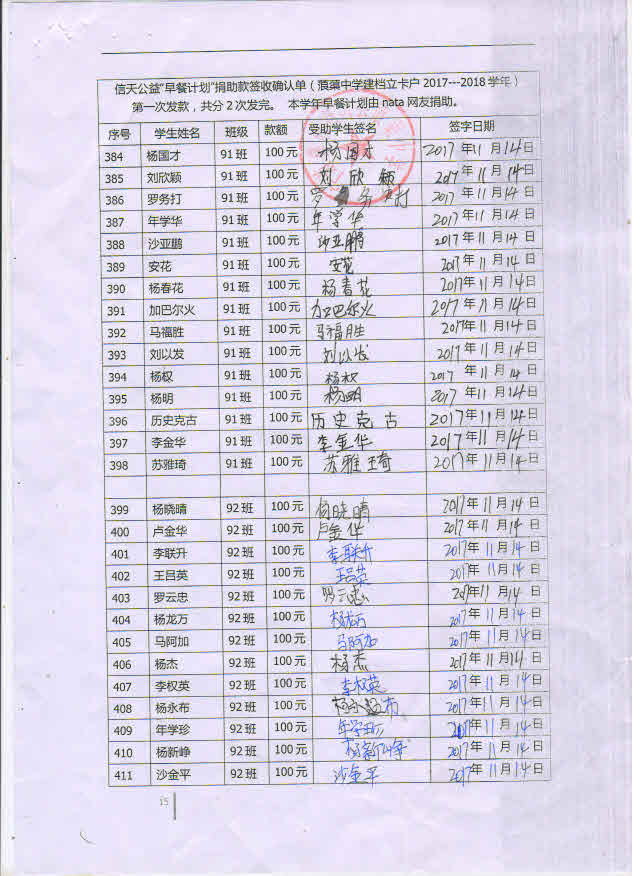 信天公益"早餐计划"捐助款签收确认单（蒗蕖中学建档立卡户 2017---2018 学年）
第一次发款，共分 2 次发完。 本学年早餐计划由 nata 网友捐助。
序号 学生姓名 班级 款额 受助学生签名 签字日期
384 杨国才 91 班 100 元 杨国才 2017 年 11 月 14 日
385 刘欣颖 91 班 100 元 刘欣颖 2017 年 11 月 14 日
386 罗务打 91 班 100 元 罗务打 2017 年 11 月 14 日
387 年学华 91 班 100 元 年学华 2017 年 11 月 14 日
388 沙亚鹏 91 班 100 元 沙亚鹏 2017 年 11 月 14 日
389 安花 91 班 100 元 安花 2017 年 11 月 14 日
390 杨春花 91 班 100 元 杨春花 2017 年 11 月 14 日
391 加巴尔火 91 班 100 元 加巴尔火 2017 年 11 月 14 日
392 马福胜 91 班 100 元 马福胜 2017 年 11 月 14 日
393 刘以发 91 班 100 元 刘以发 2017 年 11 月 14 日
394 杨权 91 班 100 元 杨权 2017 年 11 月 14 日
395 杨明 91 班 100 元 杨明 2017 年 11 月 14 日
396 历史克古 91 班 100 元 历史克古 2017 年 11 月 14 日
397 李金华 91 班 100 元 李金华 2017 年 11 月 14 日
398 苏雅琦 91 班 100 元 苏雅琦 2017 年 11 月 14 日
399 杨晓晴 92 班 100 元 杨晓晴 2017 年 11 月 14 日
400 卢金华 92 班 100 元 卢金华 2017 年 11 月 14 日
401 李联升 92 班 100 元 李联升 2017 年 11 月 14 日
402 王吕英 92 班 100 元 王吕英 2017 年 11 月 14 日
403 罗云忠 92 班 100 元 罗云忠 2017 年 11 月 14 日
404 杨龙万 92 班 100 元 杨龙万 2017 年 11 月 14 日
405 马阿加 92 班 100 元 马阿加 2017 年 11 月 14 日
406 杨杰 92 班 100 元 杨杰 2017 年 11 月 14 日
407 李权英 92 班 100 元 李权英 2017 年 11 月 14 日
408 杨永布 92 班 100 元 杨永布 2017 年 11 月 14 日
409 年学珍 92 班 100 元 年学珍 2017 年 11 月 14 日
410 杨新峥 92 班 100 元 杨新峥 2017 年 11 月 14 日
411 沙金平 92 班 100 元 沙金平 2017 年 11 月 14 日
15